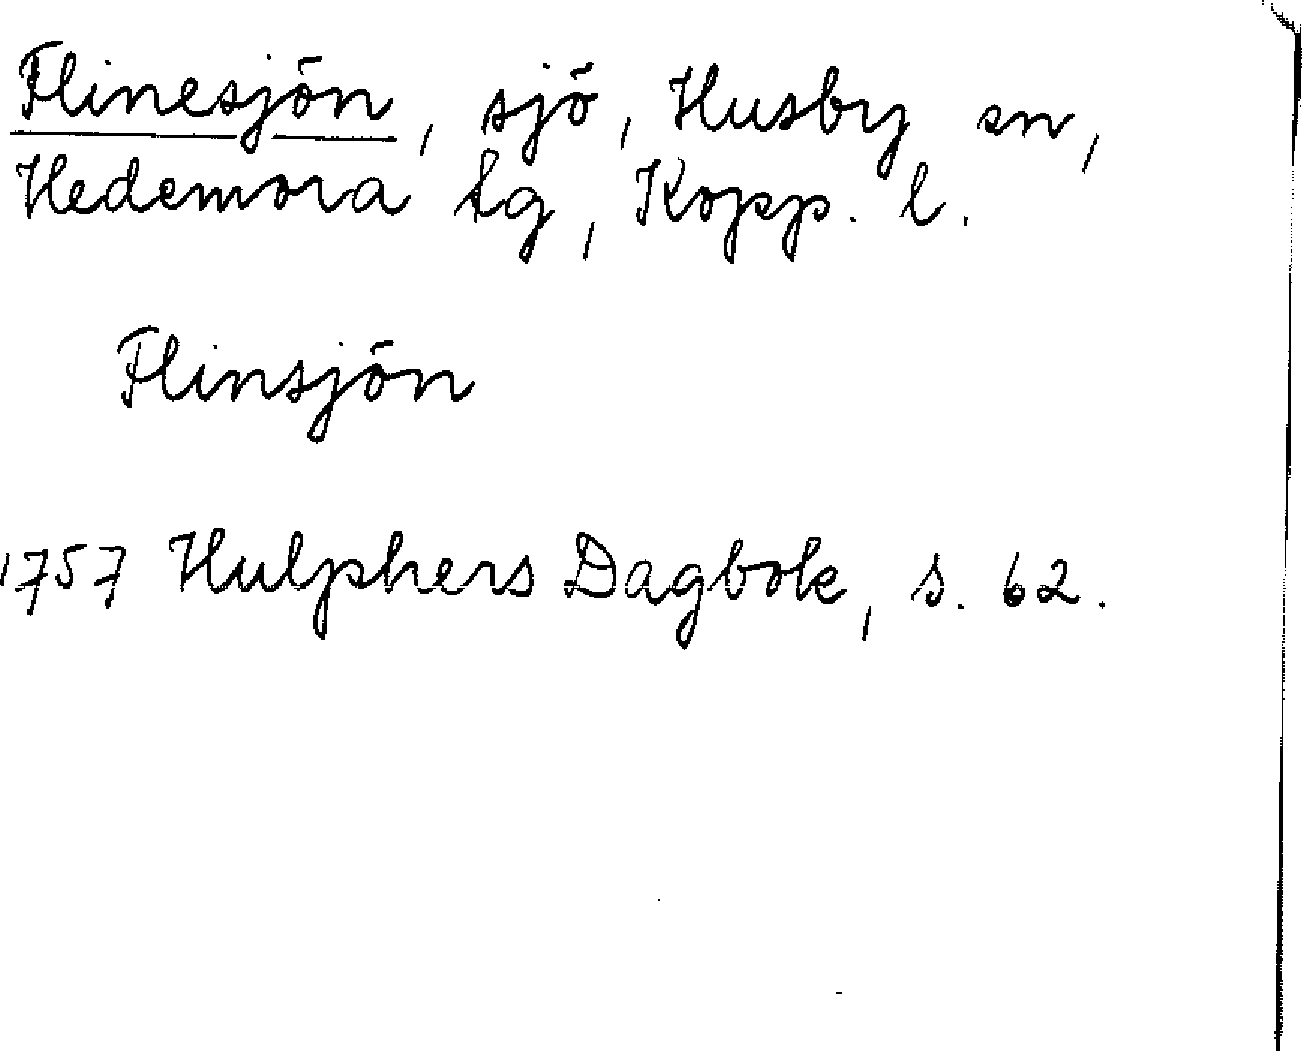 Flinesjön, sjö, Husby sn,
Hedemora tg, Kopp. l.
Flinsjön
1757 Hulphers Dagbok, s. 62.